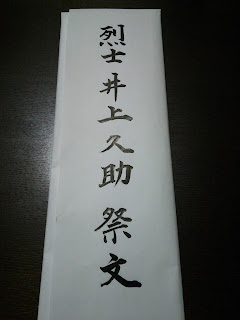 烈士井上久助祭文